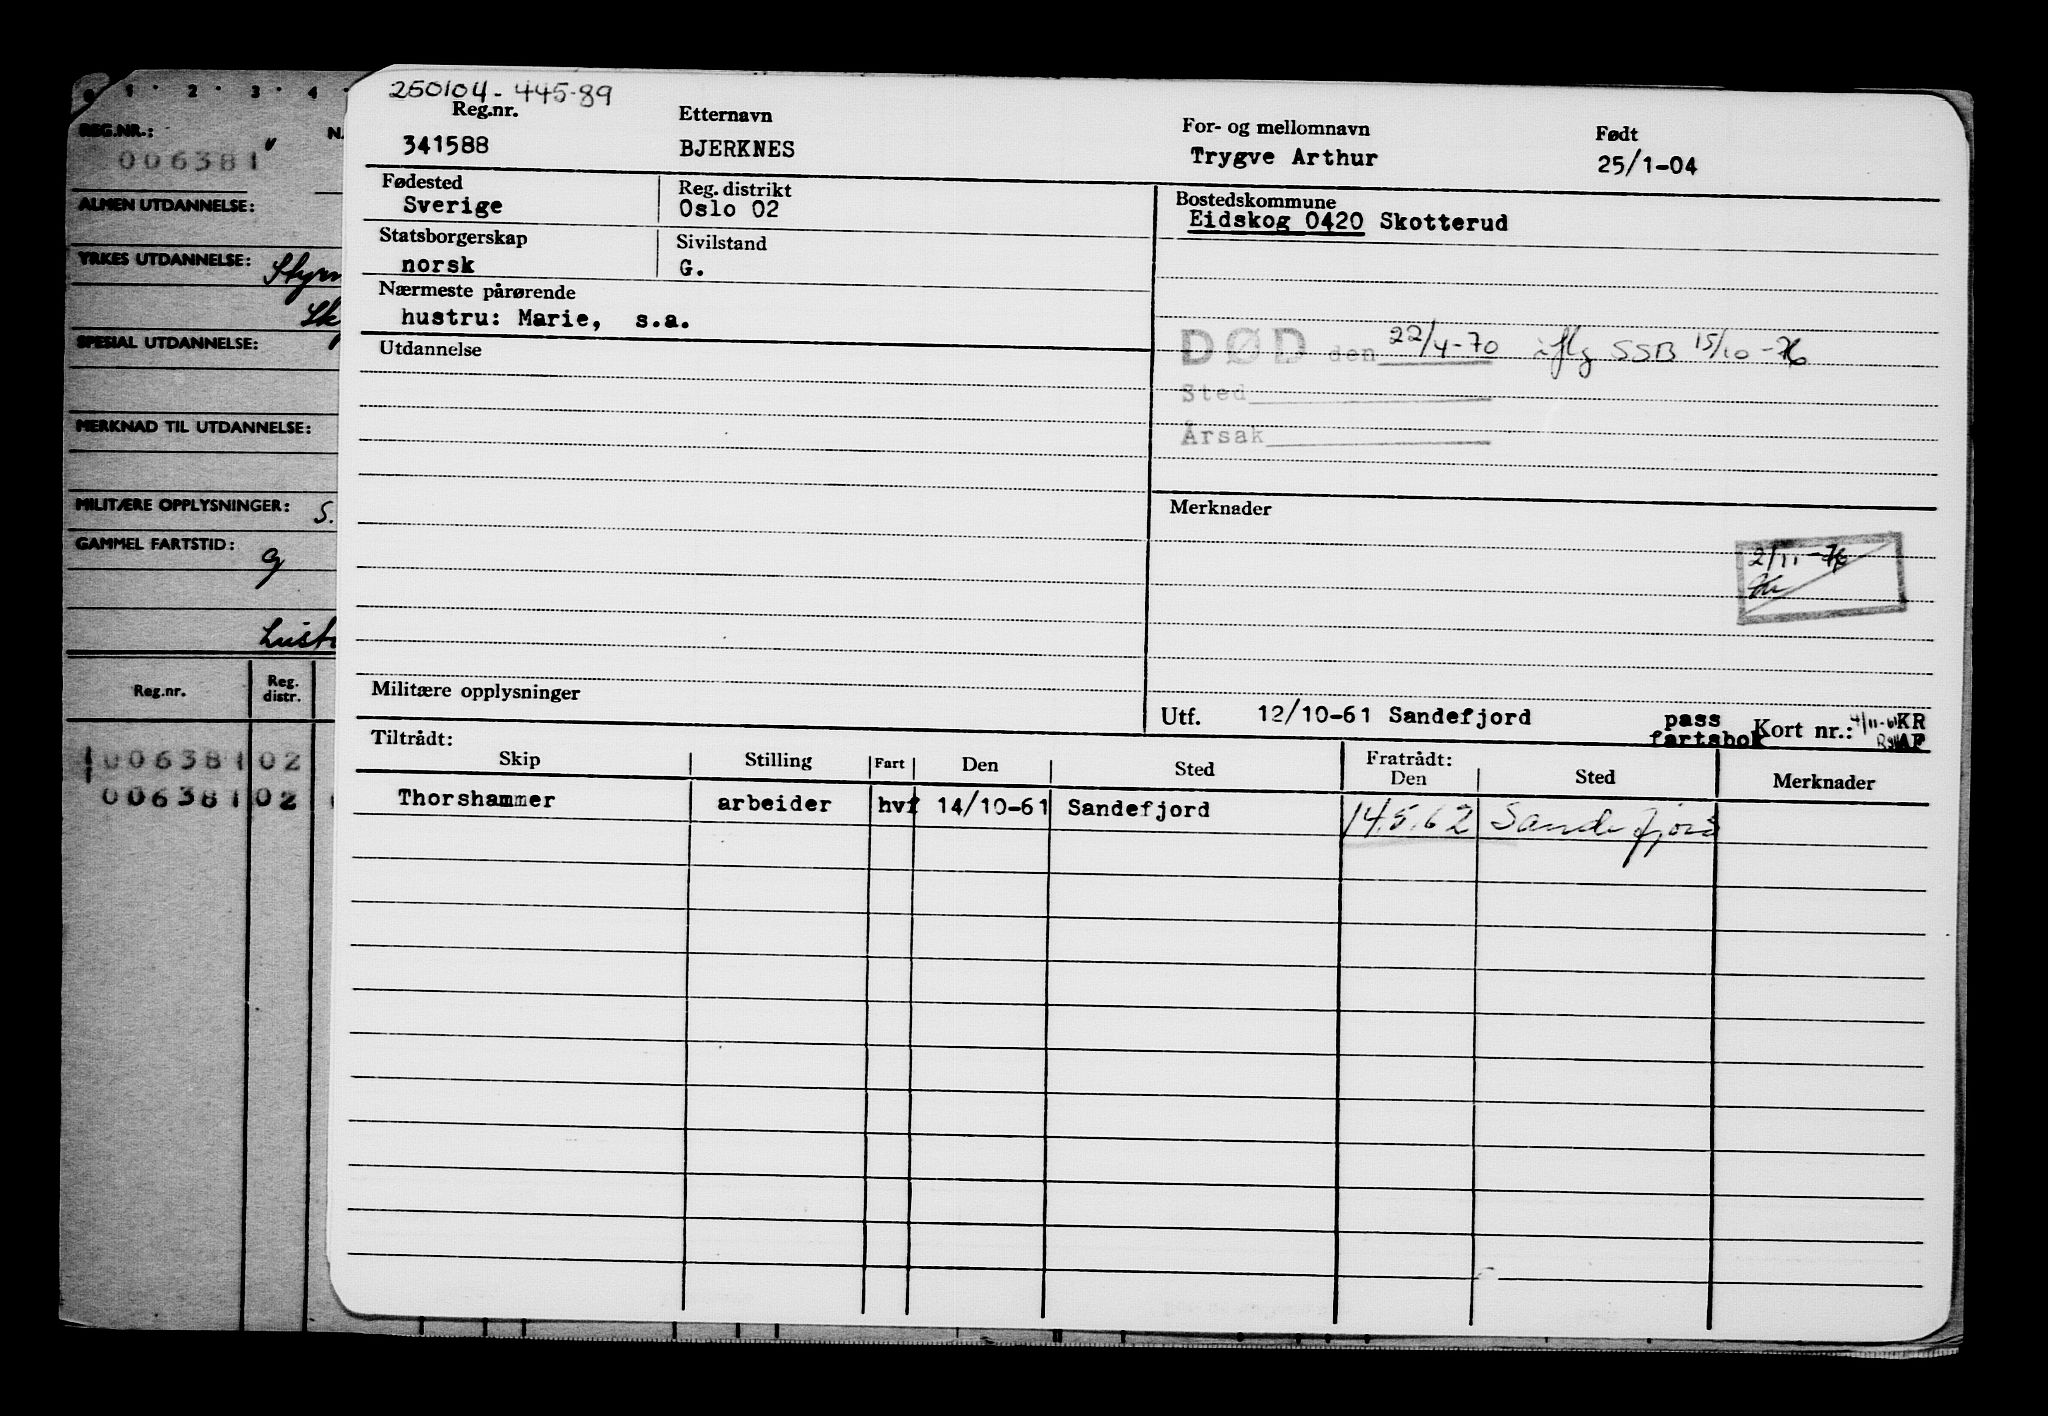 0 1 · 2 · 3 · 4 ·
REG.NR.: N
006381
ALMEN UTDANNELSE:
YRKES UTDANNELSE:
SPESIAL UTDANNELSE:
MERKNAD TIL UTDANNELSE:
MILITÆRE OPPLYSNINGER: S.
GAMMEL FARTSTID:
g
Reg.nr. Reg. distr.
006381 02
006381 02
250104-445-89
Reg.nr. Etternavn For- og mellomnavn Født
341588 BJERKNES Trygve Arthur 25/1-04
Fødested Reg. distrikt Bostedskommune
Sverige Oslo 02 Eidskog 0420 Skotterud
Statsborgerskap Sivilstand
norsk G.
Nærmeste pårørende
hustru: Marie, s.a.
DØD den 22/4-70 iflg SSB 15/10-76
Sted
Årsak
Utdannelse
Merknader
2/11-76
Militære opplysninger
Utf. 12/10-61 Sandefjord pass KR
fartsbok Kort nr.: 4/11-61 AF
Tiltrådt: Fratrådt:
Skip Stilling Fart Den Sted Den Sted Merknader
Thorshammer arbeider hvf 14/10-61 Sandefjord 14.5.62 Sandefjord